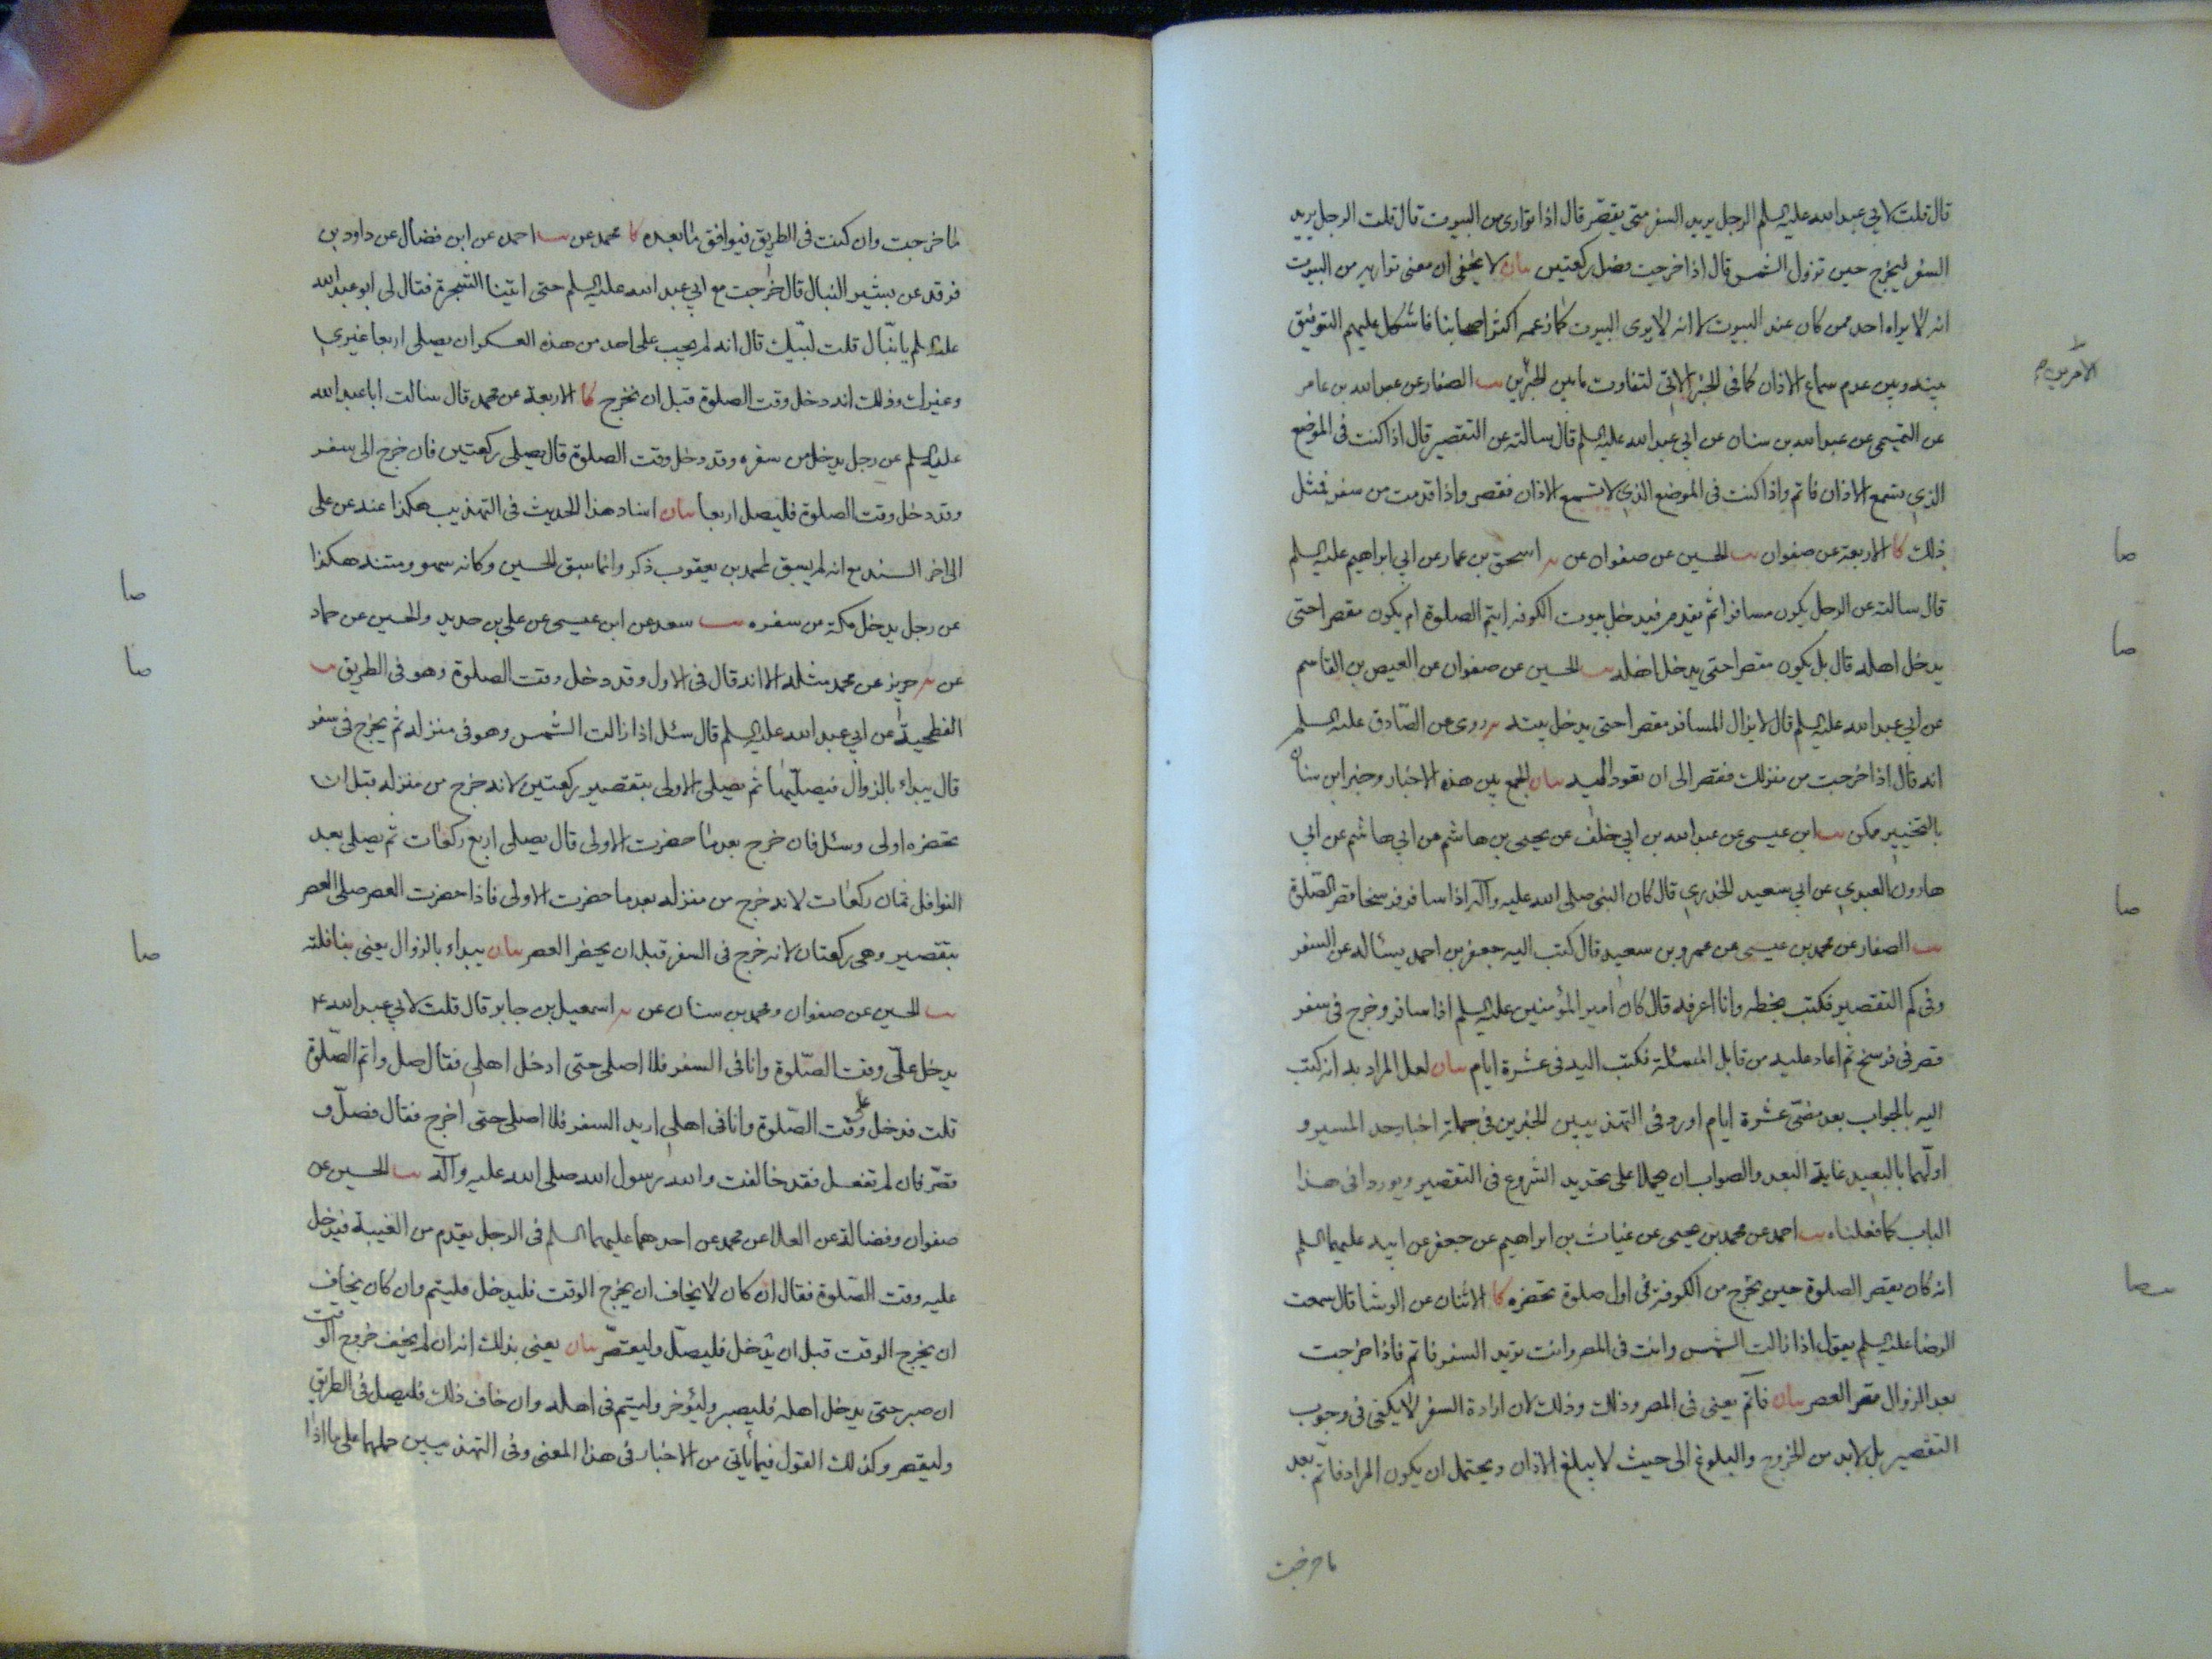 قال قلت لابي عبد الله عليه السلم الرجل يريد السفر متى يقصّر قال اذا توارى من البيوت قال قلت الرجل يريد
السفر ليخرج حين تزول الشمس قال اذا خرجت فصل ركعتين بيان لا يخفى ان معنى تواريه من البيوت
انه لا يراه احد ممن كان عند البيوت لا انه لا يرى البيوت كما زعمه اكثر اصحابنا فاشكل عليهم التوفيق
بينه وبين عدم سماع الاذان كما في الخبر الاتي لتفاوت ما بين الخبرين يب الصفار عن عبد الله بن عامر
الامرين
عن التميمي عن عبد الله بن سنان عن ابي عبد الله عليه السلم قال سالته عن التقصير قال اذا كنت في الموضع
الذي تسمع الاذان فاتم واذا كنت في الموضع الذي لا تسمع الاذان فقصر واذا قدمت من سفر فمثل
ذلك كا الاربعة عن صفوان يب الحسين عن صفوان عن اسحق بن عمار عن ابي ابراهيم عليه السلم
قال سالته عن الرجل يكون مسافرا ثم يقدم فيدخل بيوت الكوفة ايتم الصلوة ام يكون مقصرا حتى
يدخل اهله قال بل يكون مقصرا حتى يدخل اهله يب الحسين عن صفوان عن العيص بن القاسم
عن ابي عبد الله عليه السلم قال لا يزال المسافر مقصرا حتى يدخل بيته روى عن الصّادق عليه السلم
انه قال اذا خرجت من منزلك فقصر الى ان تعود اليه بيان الجمع بين هذه الاخبار وخبر ابن سنان
بالتخيير ممكن يب ابن عيسى عن عبد الله بن ابي خلف عن يحيى بن هاشم عن ابي هاشم عن ابي
هارون العبدي عن ابي سعيد الخدري قال كان النبي صلى الله عليه وآله اذا سافر فرسخا قصر الصّلوة
يب الصفار عن محمد بن عيسى عن عمرو بن سعيد قال كتب اليه جعفر بن احمد يسئاله عن السفر
وفي كم التقصير فكتب بخطه وانا اعرفه قال كان امير المؤمنين عليه السلم اذا سافر وخرج في سفر
قصر في فرسخ ثم اعاد عليه من قابل المسئلة فكتب اليه في عشرة ايام بيان لعل المراد به انه كتب
اليه بالجواب بعد مضي عشرة ايام اورد في التهذيبين الخبرين في جملة اخبار حد المسير و
اولهما بالبعيد غاية البعد والصواب ان يحملا على تحديد الشروع في التقصير ويوردا في هذا
الباب كما فعلناه يب احمد عن محمد بن عيسى عن غياث بن ابراهيم عن جعفر عن ابيه عليهما السلم
انه كان يقصر الصلوة حين يخرج من الكوفة في اول صلوة تحضره كا الاثنان عن الوشا قال سمعت
الرضا عليه السلم يقول اذا زالت الشمس وانت في المصر وانت تريد السفر فاتم فاذا خرجت
بعد الزوال قصر العصر بيان فاتم يعني في المصر وذلك وذلك لان ارادة السفر لا يكفي في وجوب
التقصير بل لابد من الخروج والبلوغ الى حيث لا يبلغ الاذان ويحتمل ان يكون المراد فاتم بعد
ما خرجت
صا
صا
صا
ما خرجت وان كنت في الطريق فيوافق ما بعده كا محمد عن يب احمد عن ابن فضال عن داود بن
فرقد عن بشير النبال قال خرجت مع ابي عبد الله عليه السلم حتى اتينا الشجرة فقال لي ابو عبد الله
عليه السلم يا نبّال قلت لبّيك قال انه لم يجب على احد من هذه العسكر ان يصلي اربعا غيري
وغيرك وذلك انه دخل وقت الصلوة قبل ان نخرج كا الاربعة عن محمد قال سالت ابا عبد الله
عليه السلم عن رجل يدخل من سفره وقد دخل وقت الصلوة قال يصلي ركعتين فان خرج الى سفر
وقد دخل وقت الصلوة فليصل اربعا بيان اسناد هذا الحديث في التهذيب هكذا عنه عن علي
الى اخر السند مع انه لم يسبق لمحمد بن يعقوب ذكر وانما سبق للحسين وكانه سهو ومتنه هكذا
عن رجل يدخل مكة من سفره يب سعد عن ابن عيسى عن علي بن حديد والحسين عن حماد
عن حريز عن محمد مثله الا انه قال في الاول وقد دخل وقت الصلوة وهو في الطريق يب
الفطحية عن ابي عبد الله عليه السلم قال سئل اذا زالت الشمس وهو في منزله ثم يخرج في سفر
قال يبداء بالزوال فيصلّيها ثم يصلي الاولى بتقصير ركعتين لانه خرج من منزله قبل ان
تحضره اولى وسئل فان خرج بعد ما حضرت الاولى قال يصلي اربع ركعات ثم يصلي بعد
النوافل ثمان ركعات لانه خرج من منزله بعد ما حضرت الاولى فاذا حضرت العصر صلى العصر
بتقصير وهي ركعتان لانه خرج في السفر قبل ان يحضر العصر بيان يبداء بالزوال يعني بنافلته
يب الحسين عن صفوان ومحمد بن سنان عن اسمعيل بن جابر قال قلت لابي عبد الله ع
يدخل عليّ وقت الصّلوة وانا في السفر فلا اصلي حتى ادخل اهلي فقال صل واتم الصّلوة
قلت فدخل علي وقت الصّلوة وانا في اهلي اريد السفر فلا اصلي حتى اخرج فقال فصلّ و
قصّر فان لم تفعل فقد خالفت والله رسول الله صلى الله عليه وآله يب الحسين عن
صفوان وفضالة عن العلا عن محمد عن احدهما عليهما السلم في الرجل يقدم من الغيبة فيدخل
عليه وقت الصّلوة فقال ان كان لا يخاف ان يخرج الوقت فليدخل فليتم وان كان يخاف
ان يخرج الوقت قبل ان يدخل فليصلّ وليقصّر بيان يعني بذلك انه ان لم يخف خروج الوقت
ان صبر حتى يدخل اهله فليصبر وليؤخر وليتم في اهله وان خاف ذلك فليصل في الطريق
وليقصر وكذلك القول فيما يأتي من الاخبار في هذا المعنى وفي التهذيبين حملهما على ما اذا
صا
صا
صا